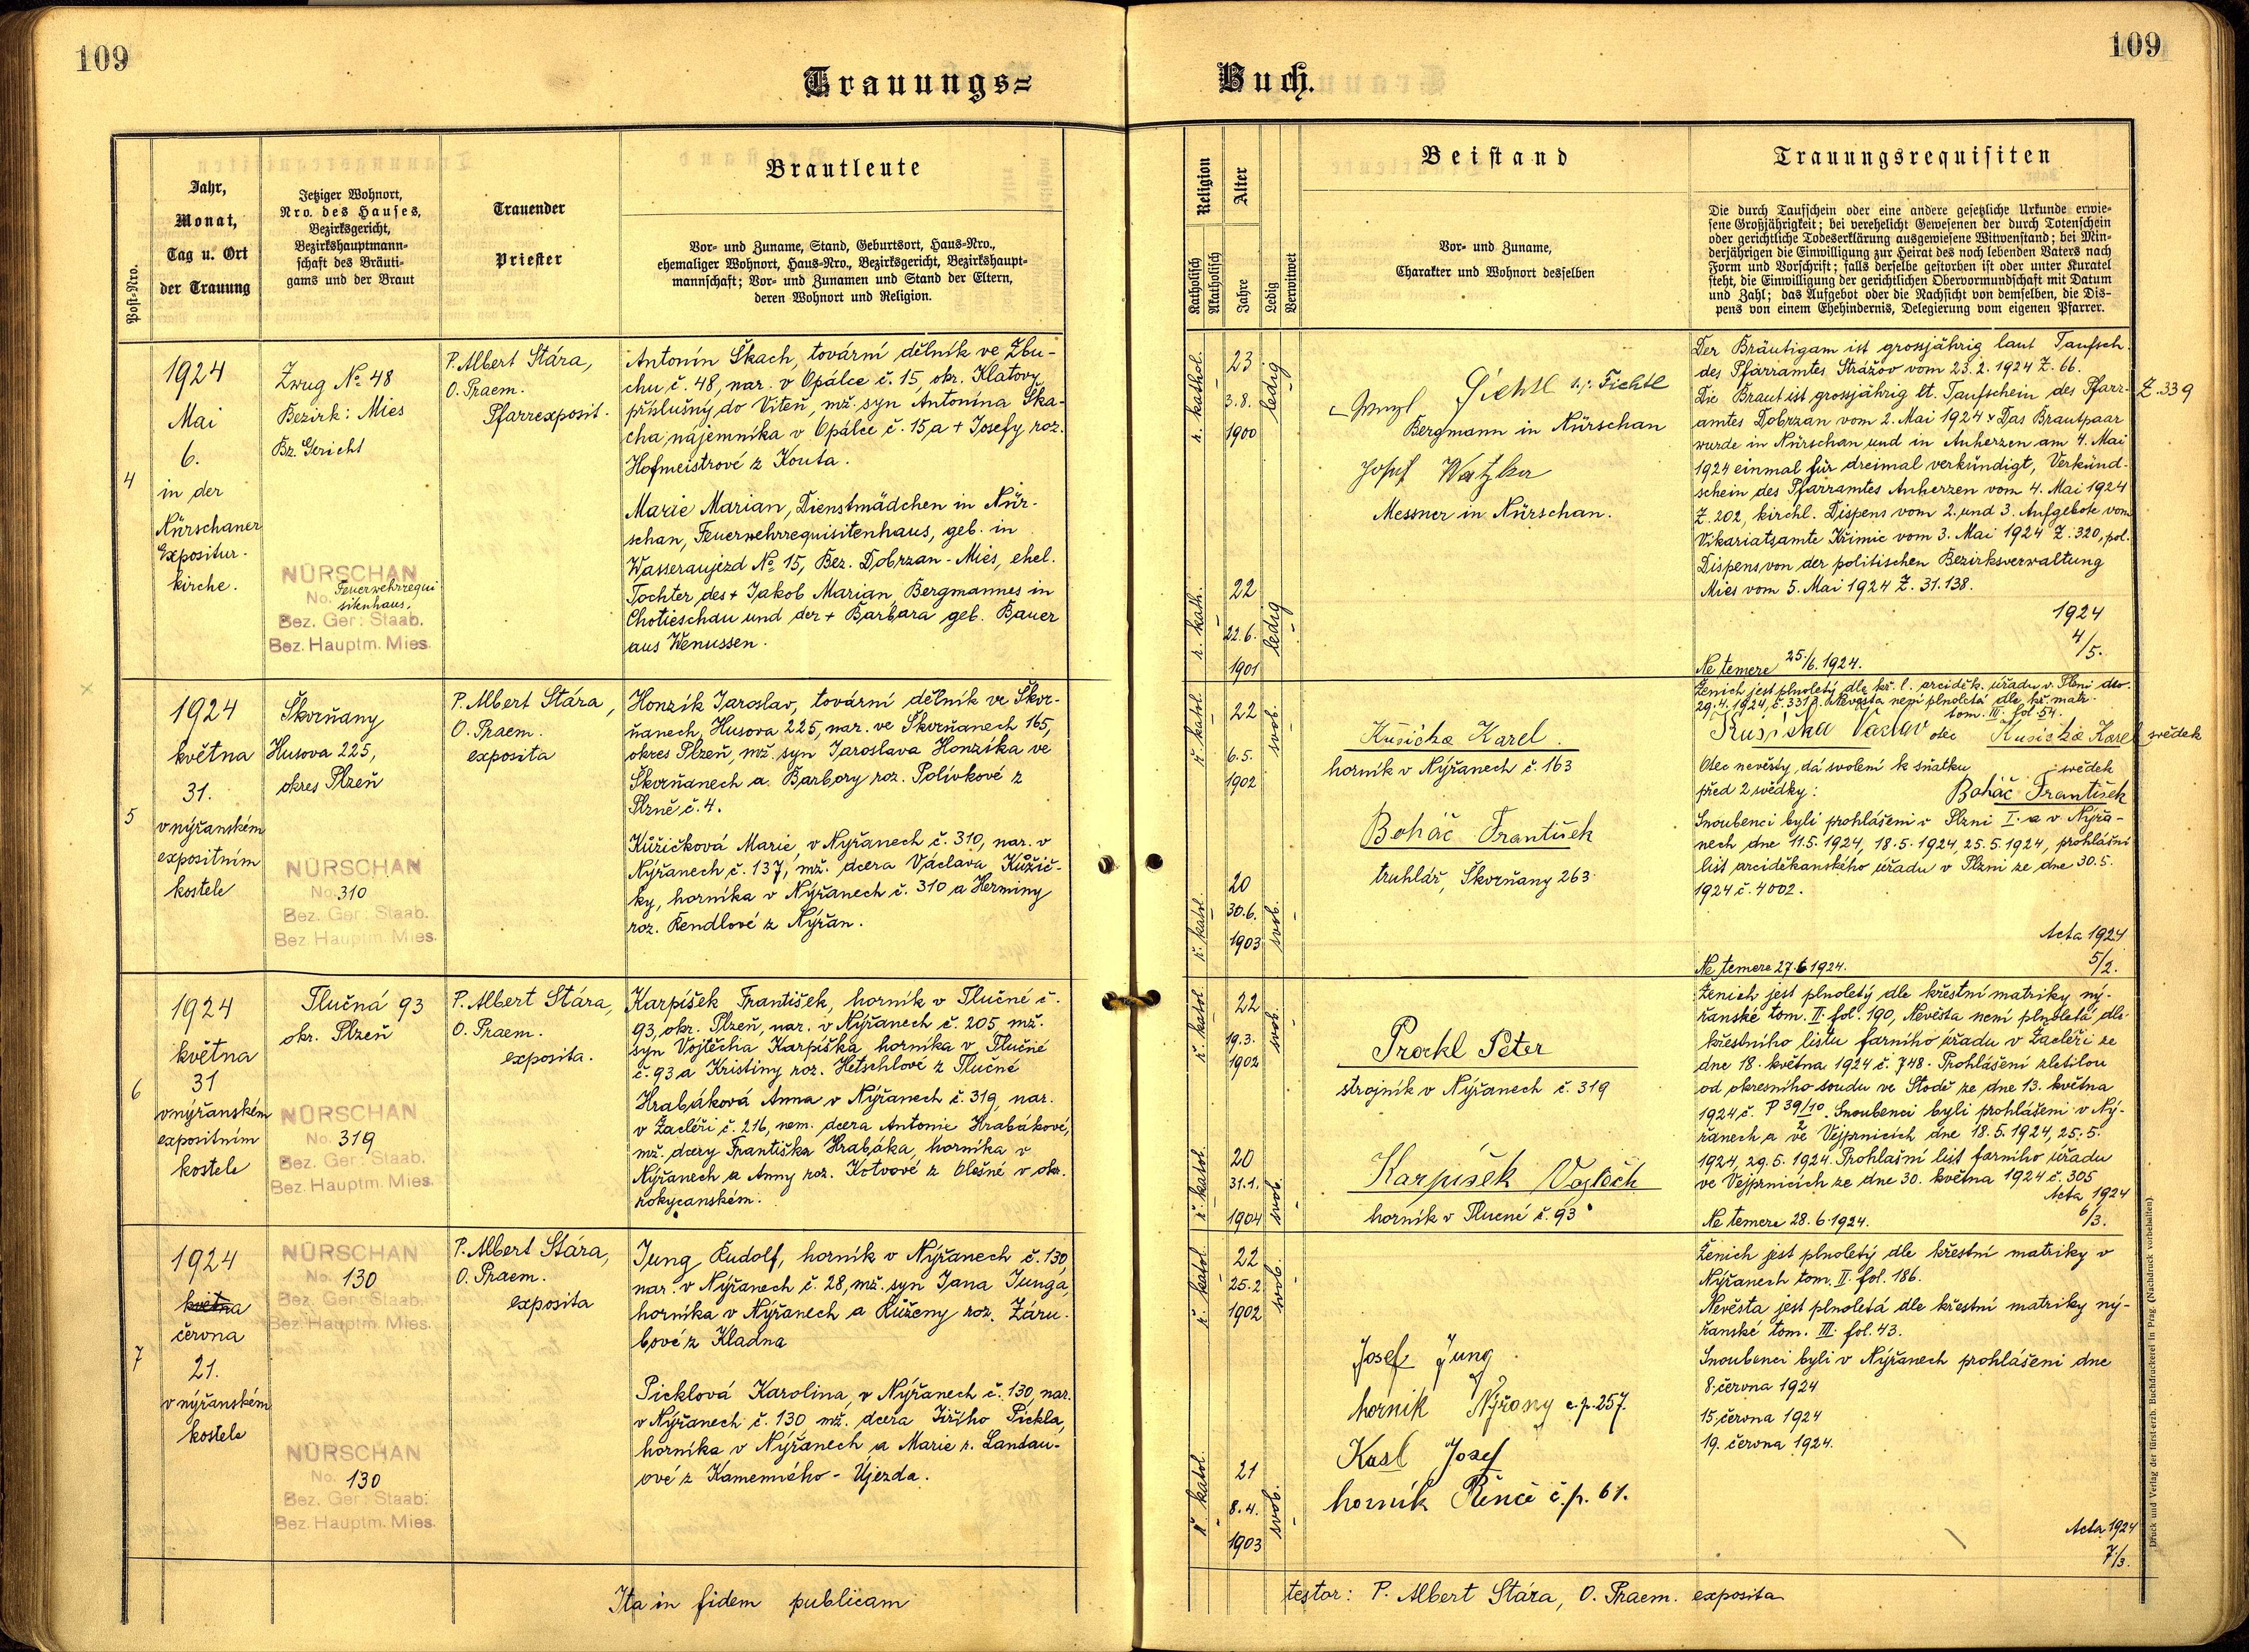 109
Trauungs=
Post-Nro.
Jahr,
Monat,
Tag u. Ort
der Trauung
Jetziger Wohnort,
Nro. des Hauses,
Bezirksgericht,
Bezirkshauptmann-
schaft des Bräuti-
gams und der Braut
Trauender
Priester
Brautleute
Vor- und Zuname, Stand, Geburtsort, Haus-Nro.,
ehemaliger Wohnort, Haus-Nro., Bezirksgericht, Bezirkshaupt-
mannschaft; Vor- und Zunamen und Stand der Eltern,
deren Wohnort und Religion.
4
1924
Mai
6.
in der
Nürschaner
Expositur-
kirche.
Zwug No 48
Bezirk: Mies
Bz. Gericht
NÜRSCHAN
No. Feuerwehrrequi
sitenhaus,
Bez. Ger: Staab.
Bez. Hauptm. Mies.
P. Albert Stára,
O. Praem.
Pfarrexposit.
Antonín Škach, tovární dělník ve Zbu-
chu č. 48, nar. v Opálce č. 15, okr. Klatovy
příslušný do Viteň, mž. syn Antonína Ška-
cha, nájemníka v Opálce č. 15, a + Josefy roz.
Hofmeistrové z Kouta.
Marie Marian, Dienstmädchen in Nür-
schan, Feuerwehrrequisitenhaus, geb. in
Wasseraujezd No 15, Bez. Dobrzan - Mies, ehel.
Tochter des + Jakob Marian, Bergmannes in
Chotieschau und der + Barbara geb. Bauer
aus Wenussen.
5
1924
května
31.
v nýřanském
expositním
kostele
Škvrňany
Husova 225,
okres Plzeň
NÜRSCHAN
No. 310
Bez. Ger: Staab.
Bez. Hauptm. Mies.
P. Albert Stára,
O. Praem.
exposita
Honzík Jaroslav, tovární dělník ve Škvr-
ňanech, Husova 225, nar. ve Škvrňanech 165,
okres Plzeň, mž. syn Jaroslava Honzíka ve
Škvrňanech a Barbory roz. Polívkové z
Plzně č. 4.
Kůžičková Marie, v Nýřanech č. 310, nar. v
Nýřanech č. 137, mž. dcera Václava Kůžič-
ky, horníka v Nýřanech č. 310 a Herminy
roz. Rendlové z Nýřan.
6
1924
května
31
v nýřanském
expositním
kostele
Tlučná 93
okr. Plzeň
NÜRSCHAN
No. 319
Bez. Ger: Staab.
Bez. Hauptm. Mies.
P. Albert Stára,
O. Praem.
exposita.
Karpíšek František, horník v Tlučné č.
93, okr. Plzeň, nar. v Nýřanech č. 205, mž.
syn Vojtěcha Karpíška, horníka v Tlučné
č. 93 a Kristiny roz. Hetschlové z Tlučné
Hrabáková Anna v Nýřanech č. 319, nar.
v Žacléři č. 216, nem. dcera Antonie Hrabákové,
mž. dcery Františka Hrabáka, horníka v
Nýřanech a Anny roz. Kotvové z Olešné v okr.
rokycanském.
7
1924
května
června
21.
v nýřanském
kostele
NÜRSCHAN
No. 130
Bez. Ger: Staab.
Bez. Hauptm. Mies.
NÜRSCHAN
No. 130
Bez. Ger: Staab:
Bez. Hauptm. Mies.
P. Albert Stára,
O. Praem.
exposita
Jung Rudolf, horník v Nýřanech č. 130,
nar. v Nýřanech č. 28, mž. syn Jana Junga,
horníka v Nýřanech a Růženy roz. Záru-
bové z Kladna
Picklová Karolina, v Nýřanech č. 130, nar.
v Nýřanech č. 130 mž. dcera Jiřího Pickla,
horníka v Nýřanech a Marie r. Landau-
ové z Kamenného - Újezda.
Ita in fidem publicam
109
Buch.
Religion
Katholisch
Akatholisch
Alter
Jahre
Ledig
Verwitwet
Beistand
Vor- und Zuname,
Charakter und Wohnort desselben
Trauungsrequisiten
Die durch Taufschein oder eine andere gesetzliche Urkunde erwie-
sene Großjährigkeit; bei verehelicht Gewesenen der durch Totenschein
oder gerichtliche Todeserklärung ausgewiesene Witwenstand; bei Min-
derjährigen die Einwilligung zur Heirat des noch lebenden Vaters nach
Form und Vorschrift; falls derselbe gestorben ist oder unter Kuratel
steht, die Einwilligung der gerichtlichen Obervormundschaft mit Datum
und Zahl; das Aufgebot oder die Nachsicht von demselben, die Dis-
pens von einem Ehehindernis, Delegierung vom eigenen Pfarrer.
r. kathol.
23
3.8.
1900
ledig
Fichtl
Fichtl
Bergmann in Nürschan
Josef Watzka
Messner in Nürschan.
r. kath.
22
22.6.
1901
ledig
Der Bräutigam ist grossjährig laut Taufsch.
des Pfarramtes Strážov vom 23. 2. 1924 Z. 66.
Die Braut ist grossjährig lt. Taufschein des Pfarr- Z. 339
amtes Dobrzan vom 2. Mai 1924 Das Brautpaar
wurde in Nürschan und in Auherzen am 4. Mai
1924 einmal für dreimal verkündigt, Verkünd-
schein des Pfarramtes Auherzen vom 4. Mai 1924
Z. 202, kirchl. Dispens vom 2. und 3. Aufgebote vom
Vikariatsamte Křimic vom 3. Mai 1924 Z. 320, pol.
Dispens von der politischen Bezirksverwaltung
Mies vom 5. Mai 1924 Z. 31.138.
1924
4/5.
Ne temere 25./6. 1924.
ř. katol.
22
6.5.
1902
svob.
Kůsička Karel
horník v Nýřanech č. 163
Boháč František
truhlář, Škvrňany 263
ř. katol.
20
30.6.
1903
svob.
Ženich jest plnoletý dle kř. l. arciděk. úřadu v Plzni dto.
29.4. 1924, č. 3312. Nevěsta není plnoletá dle kř. matr.
tom. III. fol. 54.
Václav otec Kusička Karel svědek
Otec nevěsty, dá svolení k sňatku svědek
před 2 svědky: Boháč František
Snoubenci byli prohlášeni v Plzni I. a v Nýřa-
nech dne 11.5. 1924, 18.5. 1924, 25.5. 1924, prohlašní
list arciděkanského úřadu v Plzni ze dne 30.5.
1924 č. 4002.
Acta 1924
5/2.
Ne temere 27.6.1924.
ř. katol.
22
19.3.
1902
svob.
Prockl Peter
strojník v Nýřanech č. 319
ř. katol.
20
31.1.
1904
svob.
Karpíšek Vojtěch
horník v Tlucné č. 93
Ženich jest plnoletý dle křestní matriky ný-
řanské tom. II. fol. 190, Nevěsta není plnoletá dle
křestního listu farního úřadu v Žacléři ze
dne 18. května 1924 č. 748. Prohlášení zletilou
od okresního soudu ve Stodě ze dne 13. května
1924 č. P 39/10 2. Snoubenci byli prohlášeni v Ný-
řanech a ve Vejprnicích dne 18.5. 1924, 25.5.
1924, 29.5. 1924. Prohlašní list farního úřadu
ve Vejprnicích ze dne 30. května 1924 č. 305
Acta 1924
6/3.
Ne temere 28.6.1924.
ř. katol.
22
25.2
1902
svob.
Josef Jung
horník Nýřany č.p. 257.
Kasl Josef
horník Řenče č.p. 61.
ř. katol.
21
8.4.
1903
svob.
Ženich jest plnoletý dle křestní matriky v
Nýřanech tom. II. fol. 186.
Nevěsta jest plnoletá dle křestní matriky ný-
řanské tom. III. fol. 43.
Snoubenci byli v Nýřanech prohlášeni dne
8. června 1924
15. června 1924
19. června 1924.
Acta 1924
7/3.
testor: P. Albert Stára, O. Praem. exposita
Druck und Verlag der fürst-erzb. Buchdruckerei in Prag. (Nachdruck vorbehalten).